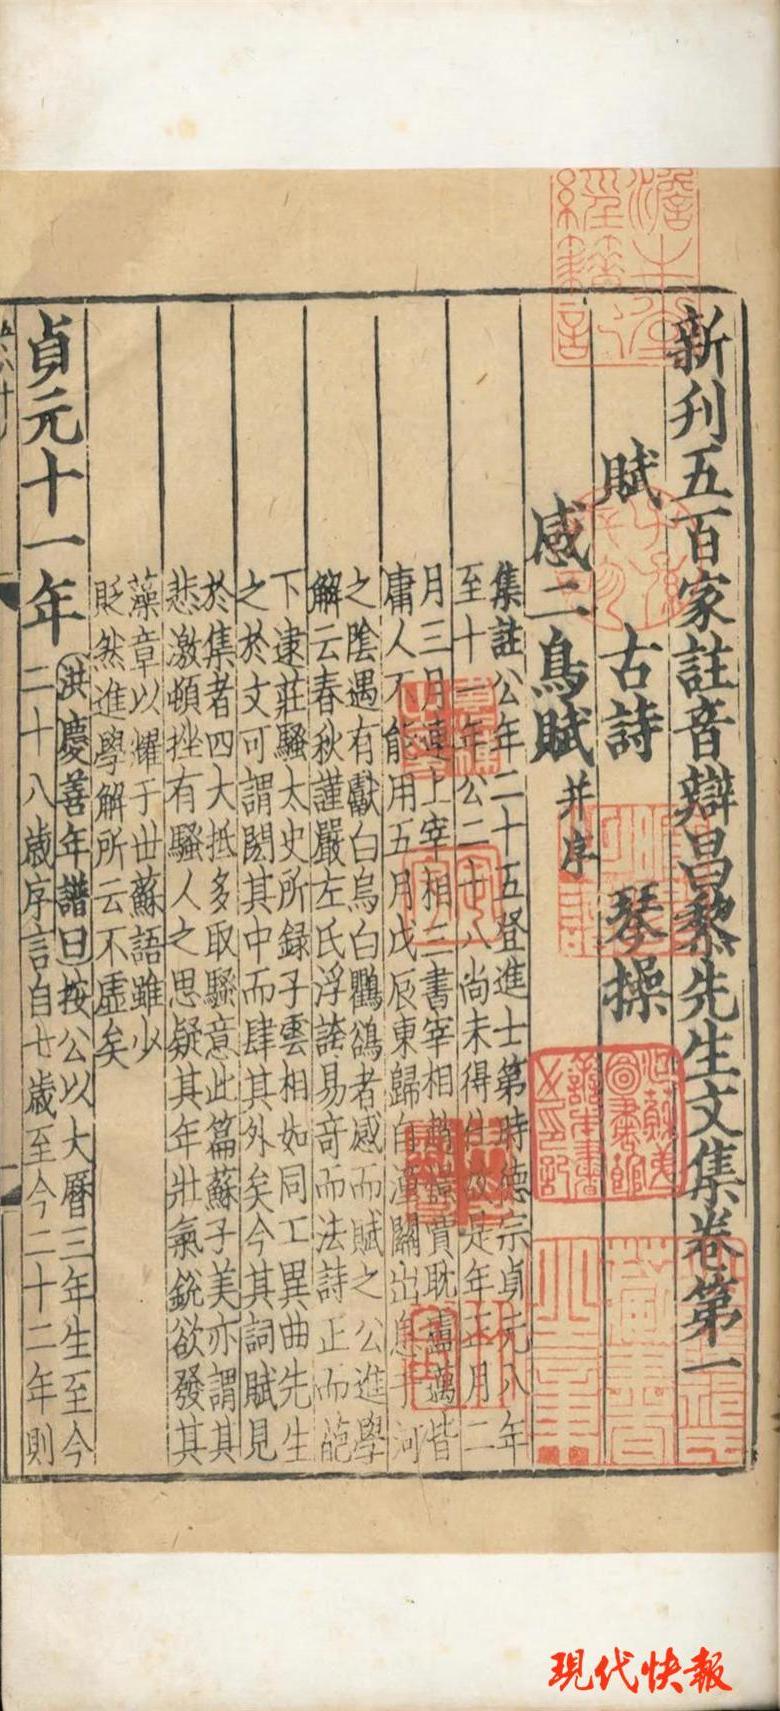 新刋五百家註音辯昌黎先生文集卷第一
賦 古詩 琴操
感二鳥賦 并序
集註公年二十五登進士第時德宗貞元八年
至十一年公二十八尚未得仕故是年正月二
月三月連上宰相三書宰相趙憬賈耽盧邁皆
庸人不能用五月戊辰東歸自潼關出息于河
之陰遇有獻白烏白鸜鵒者感而賦之公進學
解云春秋謹嚴左氏浮誇易竒而法詩正而葩
下逮莊騷太史所録子雲相如同工異曲先生
之於文可謂閎其中而肆其外矣今其詞賦見
於集者四大抵多取騷意此篇蘇子美亦謂其
悲激頓挫有騷人之思疑其年壯氣銳欲發其
藻章以耀于世蘇語雖少
貶然進學解所云不虛矣
貞元十一年
洪慶善年譜曰按公以大曆三年生至今
二十八歲序言自七歲至今二十二年則
現代快報